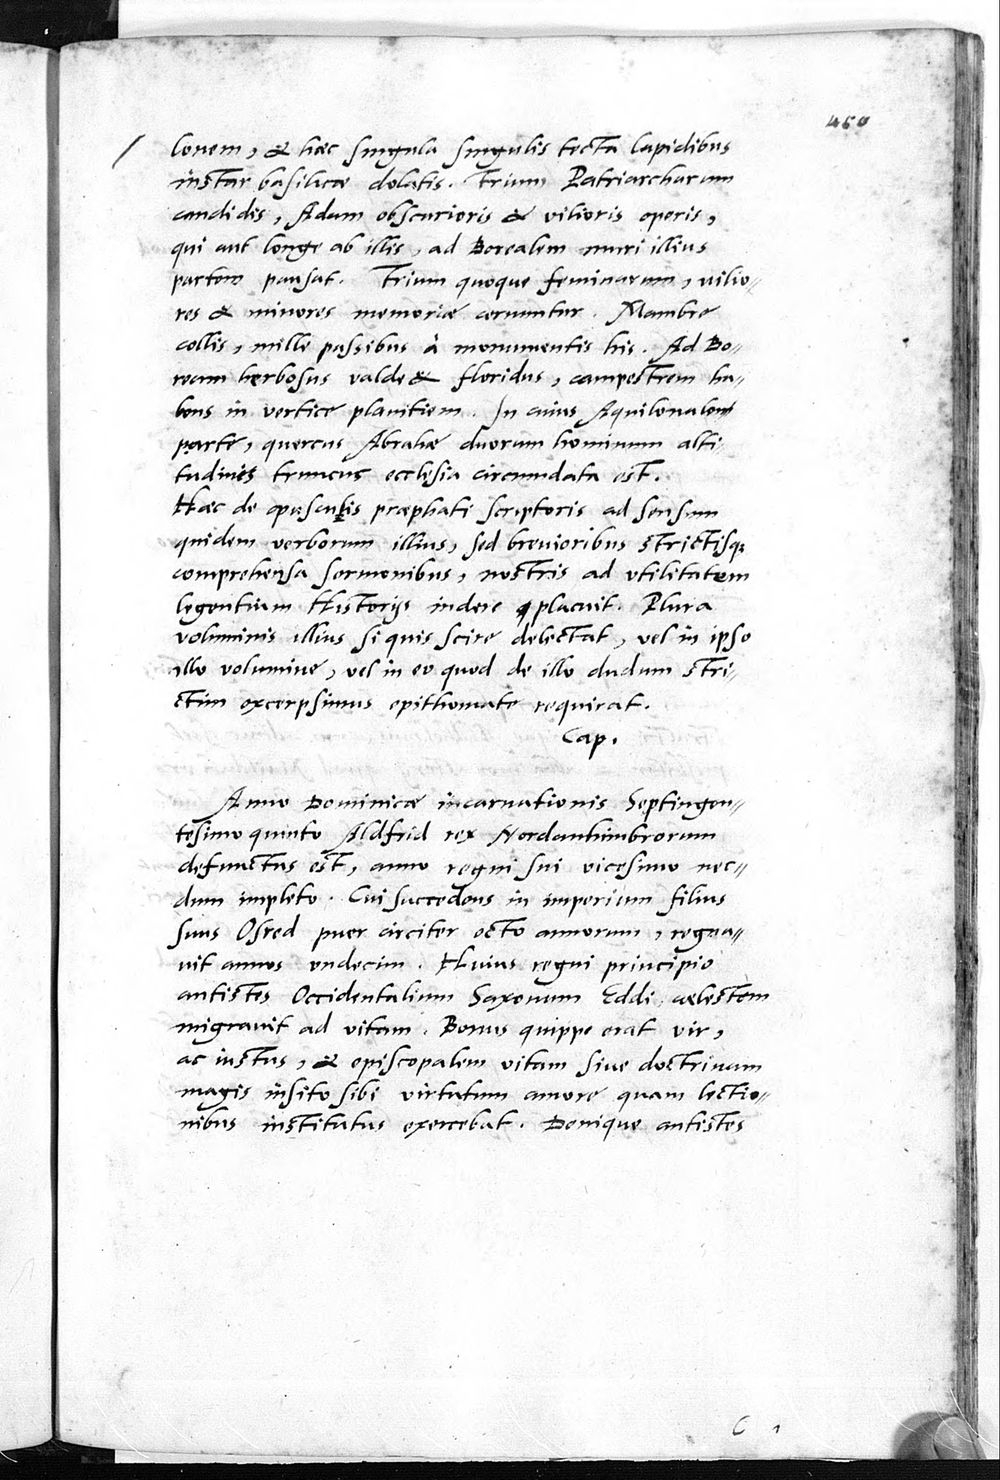 460
lonem, & hæc singula singulis tecta lapidibus
instar basilicæ dolatis. Trium Patriarcharum
candidis, Adam obscurioris & vilioris operis,
qui aut longe ab illis, ad Borealem muri illius
partem pausat. Trium quoque feminarum, vilio„
res & minores memoriæ cernuntur. Mambre
collis, mille passibus à monumentis his. Ad Bo„
ream herbosus valde & floridus, campestrem ha„
bens in vertice planitiem. In cuius Aquilonalem
parte, quercus Abrahæ duorum hominum alti„
tudinis truncus ecclesia circumdata est.
Hæc de opusculis præphati scriptoris ad sensum
quidem verborum illius, sed brevioribus strictisq;
comprehensa sermonibus, nostris ad vtilitatem
legentium Historijs indere placuit. Plura
voluminis illius si quis scire delectat, vel in ipso
illo volumine, vel in eo quod de illo dudum stri„
ctim excerpsimus epithomate requirat.
Cap.
Anno Dominicæ incarnationis Septingen„
tesimo quinto Aldfrid rex Nordanhimbrorum
defunctus est, anno regni sui vicesimo nec„
dum impleto. Cui succedens in imperium filius
suus Osred puer circiter octo annorum, regna„
uit annos vndecim. Huius regni principio
antistes Occidentalium Saxonum Eddi, cælestem
migrauit ad vitam. Bonus quippe erat vir,
ac iustus, & episcopalem vitam siue doctrinam
magis insito sibi virtutum amore quam lectio„
nibus institutus exercebat. Denique antistes